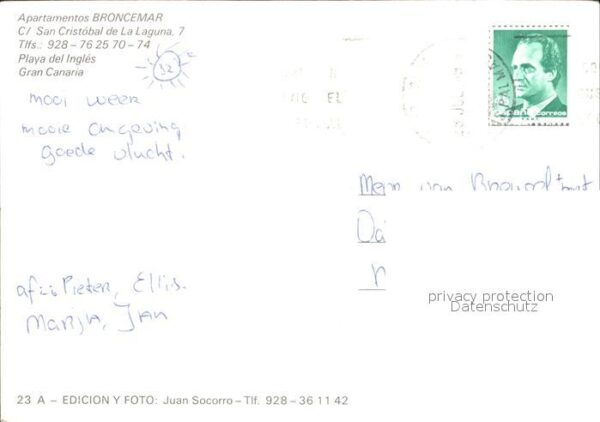 Apartamentos BRONCEMAR
C/ San Cristóbal de La Laguna, 7
Tlfs.: 928 - 76 25 70 - 74
Playa del Inglés
Gran Canaria
32
mooi weer
mooie omgeving
goede vlucht.
correos
PALMAS
van
privacy protection
Datenschutz
afz: Pieter, Ellis.
Marija, Jan
23 A - EDICION Y FOTO: Juan Socorro - Tlf. 928 - 36 11 42